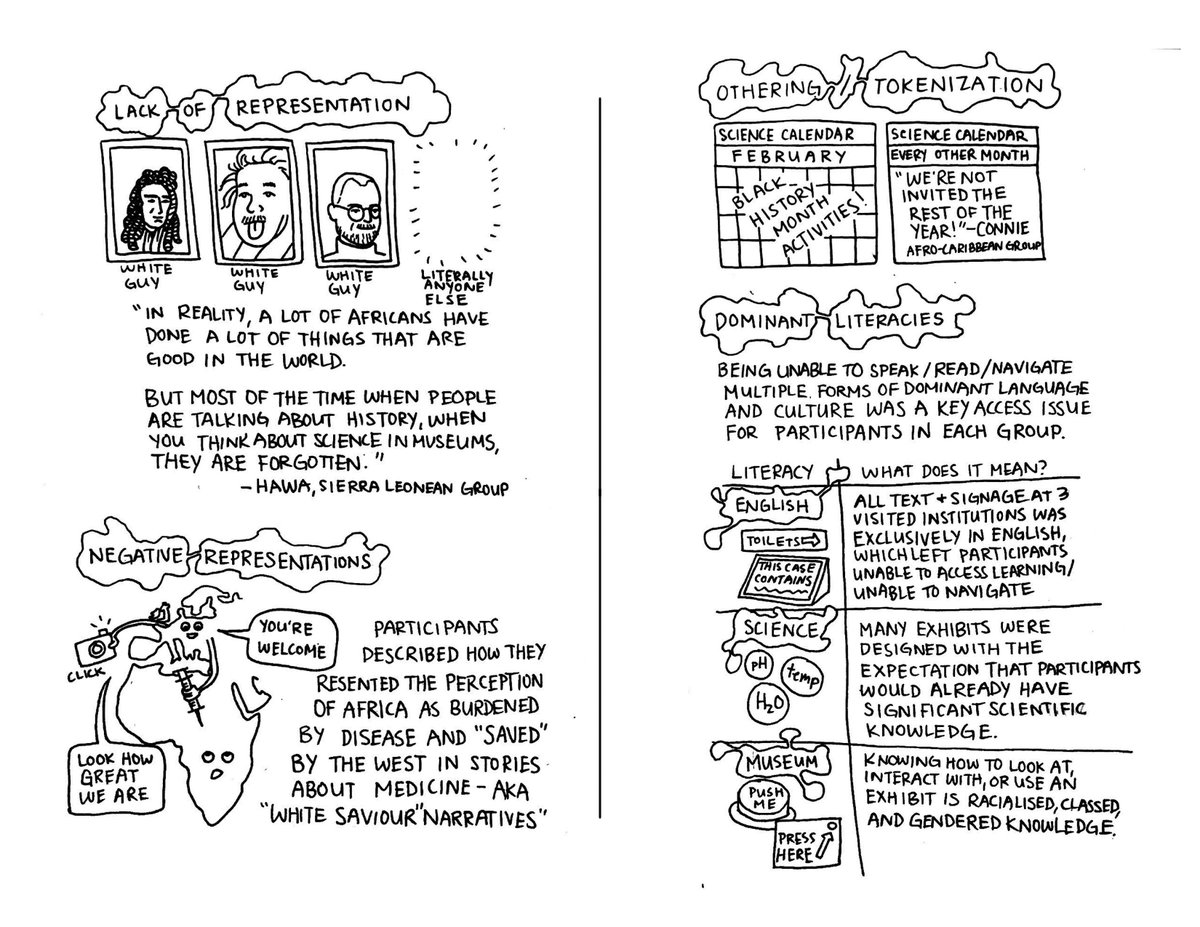 LACK OF REPRESENTATION
WHITE GUY
WHITE GUY
WHITE GUY
LITERALLY
ANYONE
ELSE
"IN REALITY, A LOT OF AFRICANS HAVE
DONE A LOT OF THINGS THAT ARE
GOOD IN THE WORLD.
BUT MOST OF THE TIME WHEN PEOPLE
ARE TALKING ABOUT HISTORY, WHEN
YOU THINK ABOUT SCIENCE IN MUSEUMS,
THEY ARE FORGOTTEN."
- HAWA, SIERRA LEONEAN GROUP
NEGATIVE REPRESENTATIONS
YOU'RE
WELCOME
CLICK
LOOK HOW
GREAT
WE ARE
PARTICIPANTS
DESCRIBED HOW THEY
RESENTED THE PERCEPTION
OF AFRICA AS BURDENED
BY DISEASE AND "SAVED"
BY THE WEST IN STORIES
ABOUT MEDICINE - AKA
"WHITE SAVIOUR" NARRATIVES"
OTHERING // TOKENIZATION
SCIENCE CALENDAR
FEBRUARY
BLACK
HISTORY
MONTH
ACTIVITIES!
SCIENCE CALENDAR
EVERY OTHER MONTH
"WE'RE NOT
INVITED THE
REST OF THE
YEAR!" - CONNIE
AFRO-CARIBBEAN GROUP
DOMINANT LITERACIES
BEING UNABLE TO SPEAK/READ/NAVIGATE
MULTIPLE FORMS OF DOMINANT LANGUAGE
AND CULTURE WAS A KEY ACCESS ISSUE
FOR PARTICIPANTS IN EACH GROUP.
LITERACY
WHAT DOES IT MEAN?
ENGLISH
TOILETS
THIS CASE
CONTAINS
ALL TEXT + SIGNAGE AT 3
VISITED INSTITUTIONS WAS
EXCLUSIVELY IN ENGLISH,
WHICH LEFT PARTICIPANTS
UNABLE TO ACCESS LEARNING/
UNABLE TO NAVIGATE
SCIENCE
pH
temp
H2O
MANY EXHIBITS WERE
DESIGNED WITH THE
EXPECTATION THAT PARTICIPANTS
WOULD ALREADY HAVE
SIGNIFICANT SCIENTIFIC
KNOWLEDGE.
MUSEUM
PUSH
ME
PRESS
HERE
KNOWING HOW TO LOOK AT,
INTERACT WITH, OR USE AN
EXHIBIT IS RACIALISED, CLASSED,
AND GENDERED KNOWLEDGE.